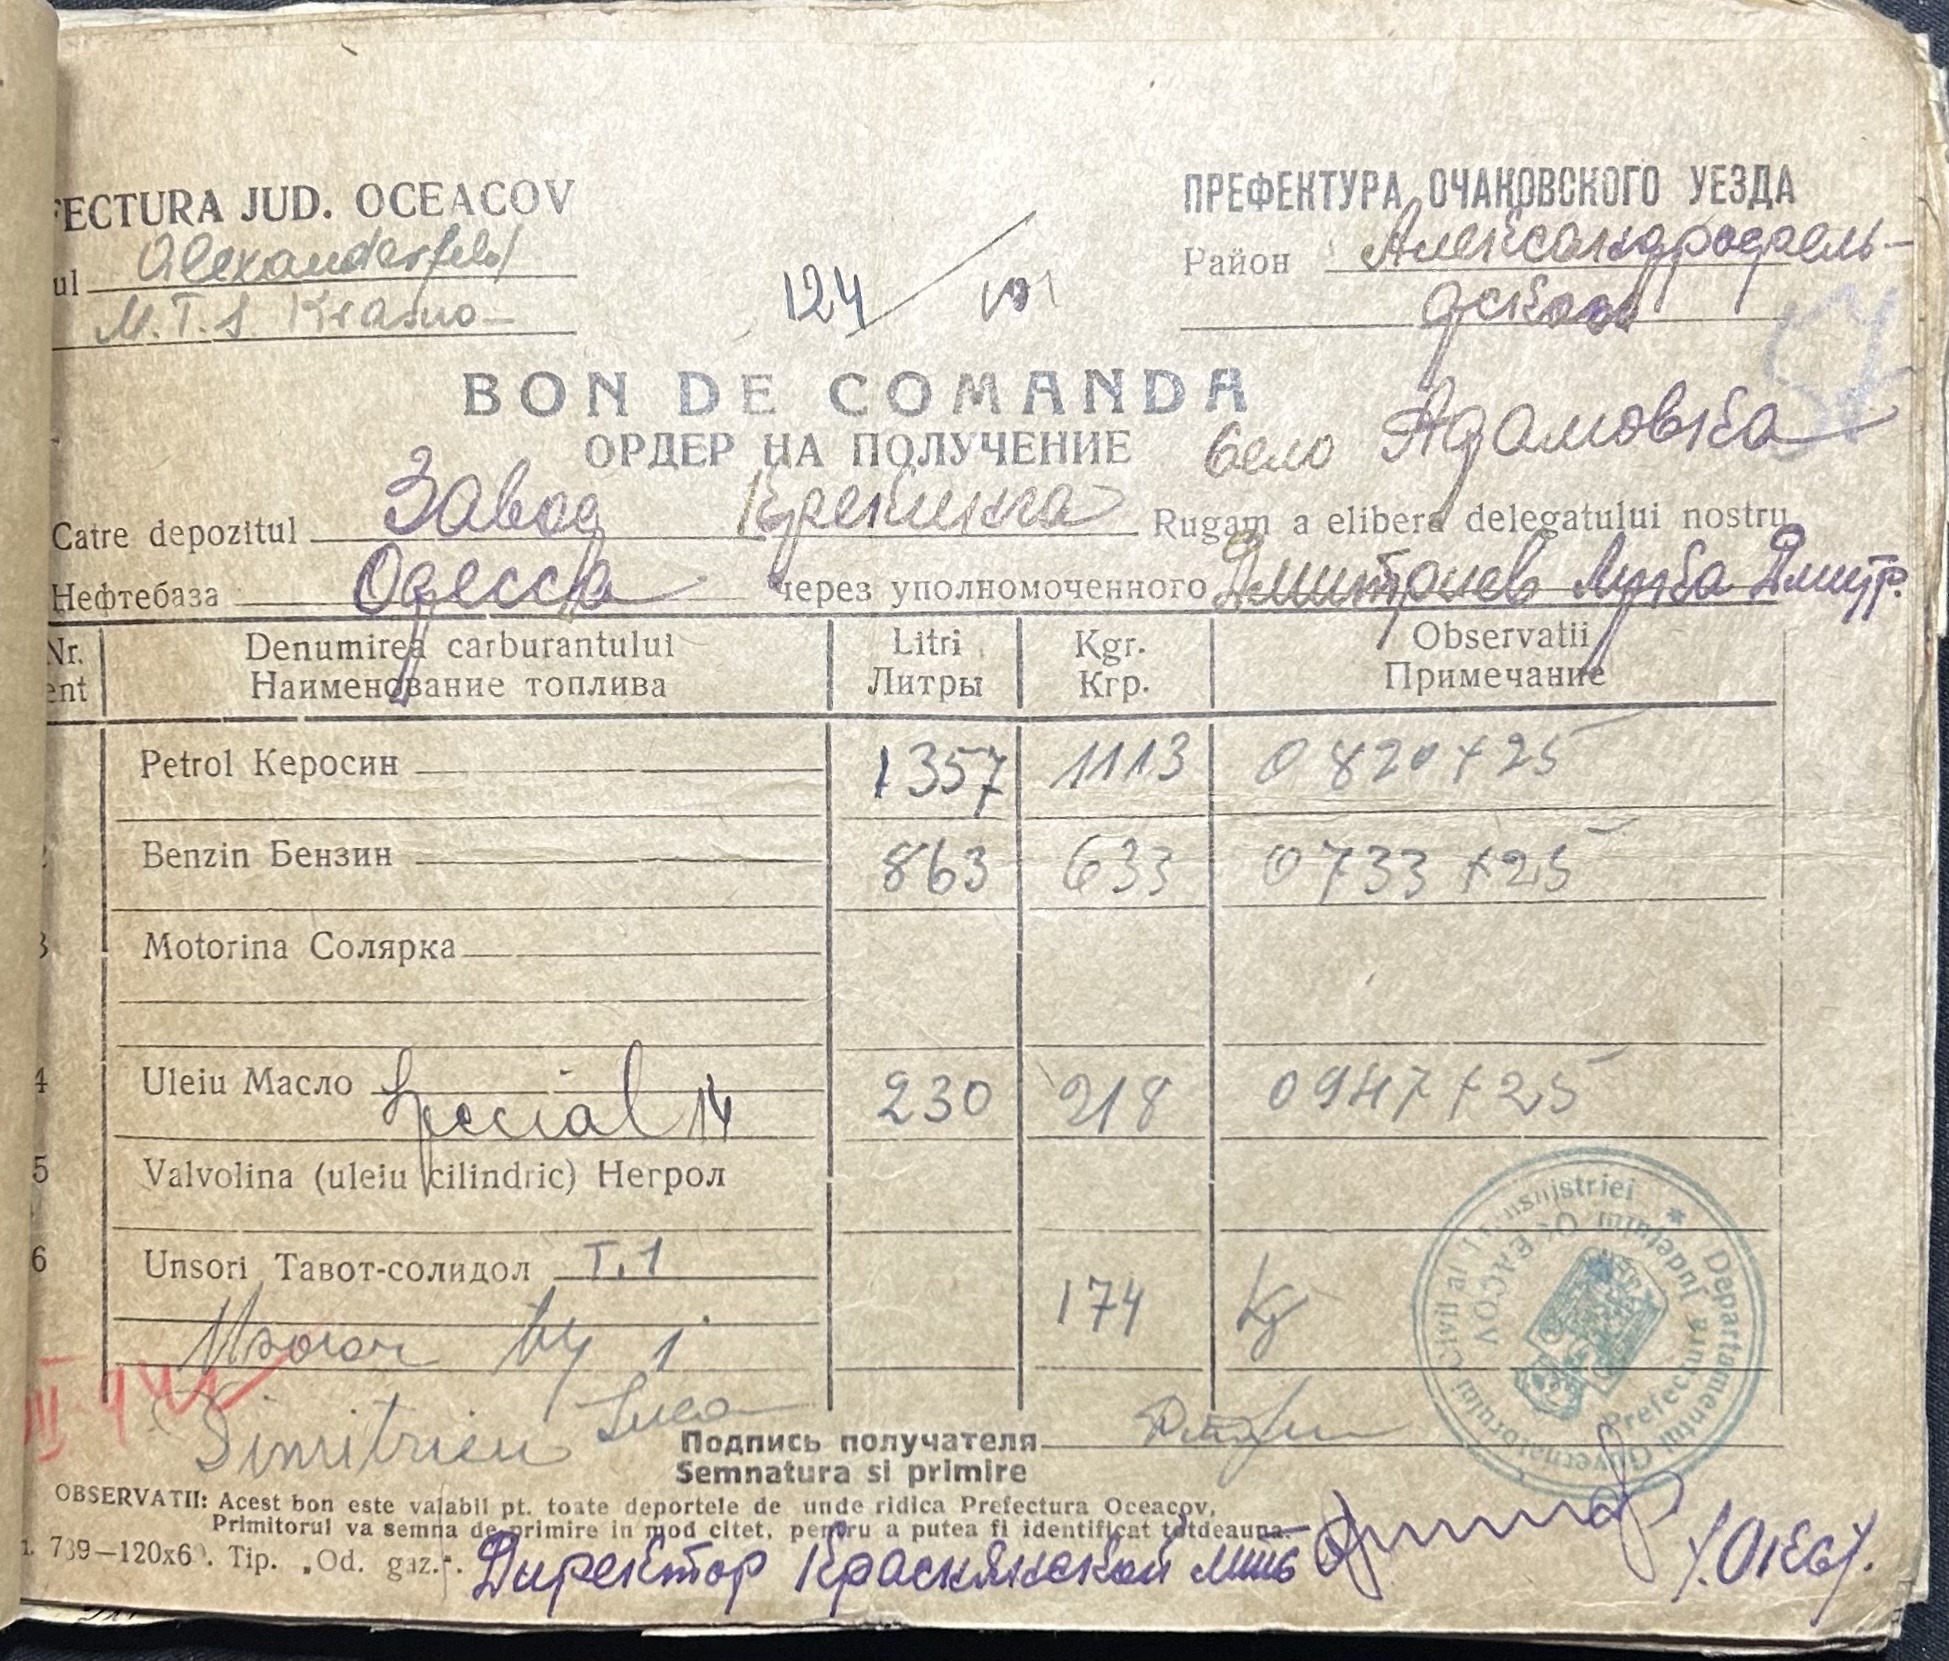 FECTURA JUD. OCEACOV
ПРЕФЕКТУРА ОЧАКОВСКОГО УЕЗДА
ul Alexanderfeld
Район Александрофель-
дский
M.T.S. Krasno-
124 /
BON DE COMANDA
ОРДЕР НА ПОЛУЧЕНИЕ
Село Адамовка
Catre depozitul Завод Крекинга Rugam a elibera delegatului nostru
Нефтебаза Одесса через уполномоченного Дмитриев Лука Дмитр.
Nr. Denumirea carburantului Litri Kgr. Observatii
ent Наименование топлива Литры Кгр. Примечание
Petrol Керосин 1357 1113 0820 + 25
2 Benzin Бензин 863 633 0733 + 25
3 Motorina Солярка
4 Uleiu Масло Special 14 230 218 0947 + 25
5 Valvolina (uleiu cilindric) Негрол
6 Unsori Тавот-солидол T.1
174 Kg
Dimitrieu Luca
Подпись получателя
Semnatura si primire
OBSERVATII: Acest bon este valabil pt. toate deportele de unde ridica Prefectura Oceacov,
Primitorul va semna de primire in mod citet, pentru a putea fi identificat totdeauna.
739—120x6 . Tip. „Od. gaz.".
Директор Краснянской мтс
Guvernatorului Civil al Transnistriei * Departamentul
Prefectura Judetului OCEACOV